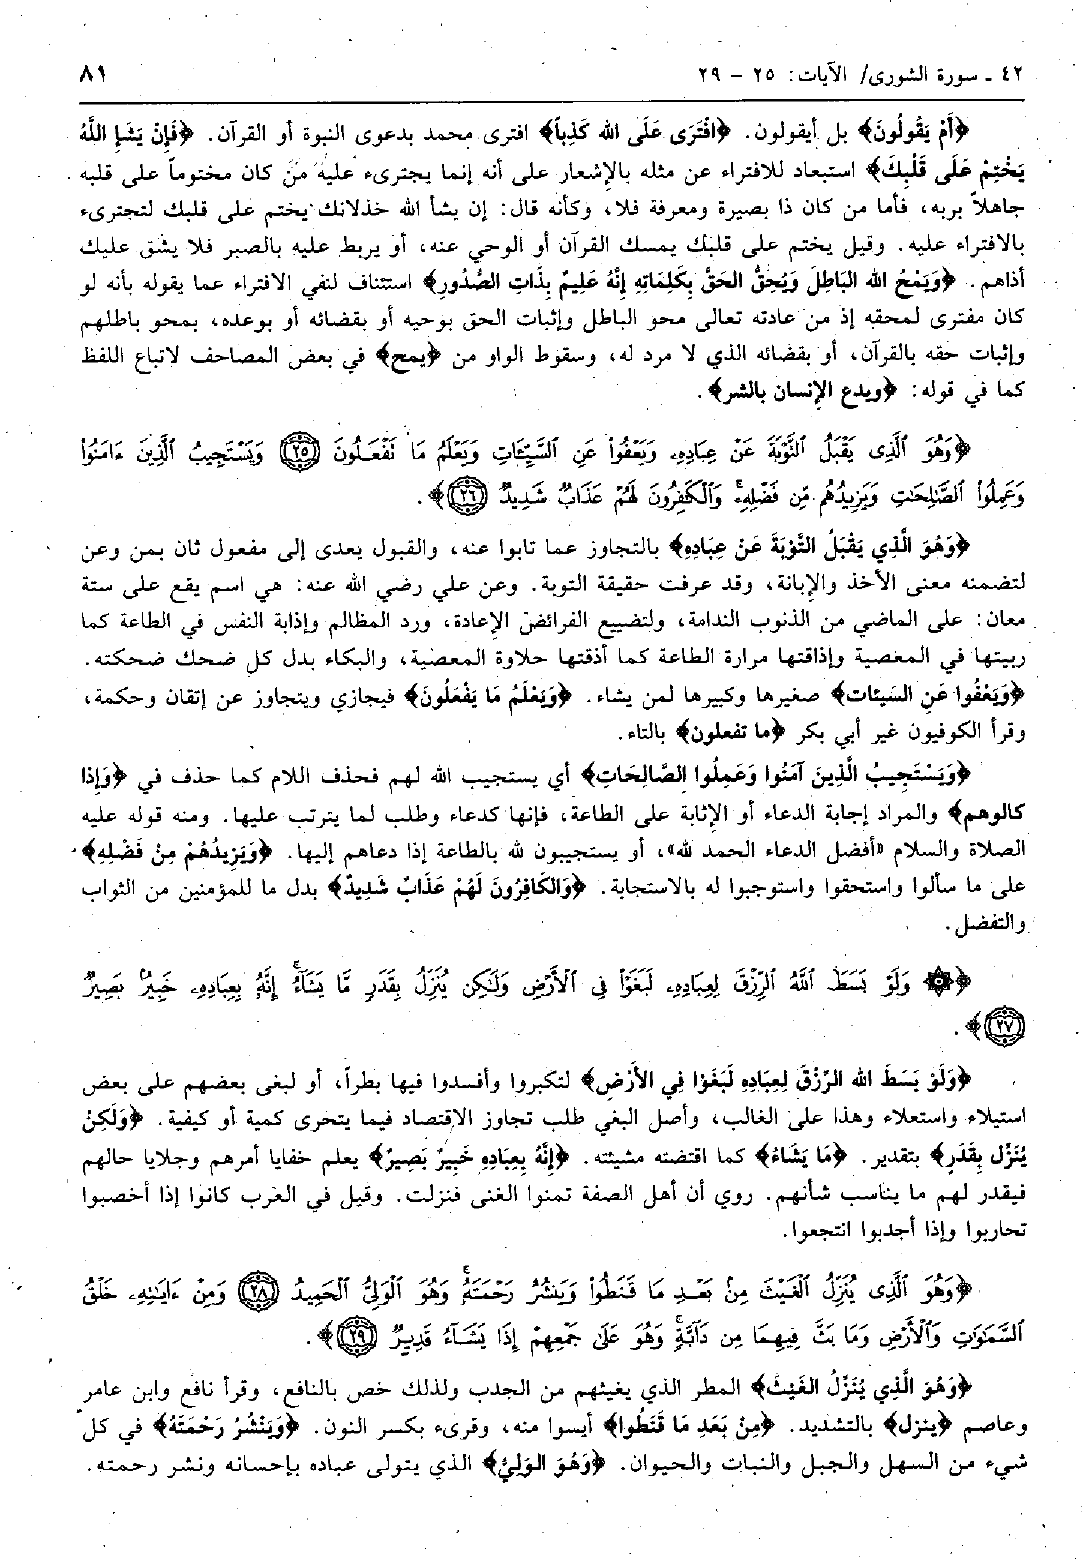 ٤٢ ـ سورة الشورى/ الآيات: ٢٥ – ٢٩
٨١
﴿أَمْ يَقُولُونَ﴾ بل أيقولون. ﴿افْتَرَى عَلَى الله كَذِباً﴾ افترى محمد بدعوى النبوة أو القرآن. ﴿فَإِنْ يَشَإِ اللَّهُ
يَخْتِمْ عَلَى قَلْبِكَ﴾ استبعاد للافتراء عن مثله بالإِشعار على أنه إنما يجترىء عليه مَنْ كان مختوماً على قلبه
جاهلاً بربه، فأما من كان ذا بصيرة ومعرفة فلا، وكأنه قال: إن يشأ الله خذلانك يختم على قلبك لتجترىء
بالافتراء عليه. وقيل يختم على قلبك يمسك القرآن أو الوحي عنه، أو يربط عليه بالصبر فلا يشق عليك
أذاهم. ﴿وَيَمْحُ الله البَاطِلَ وَيُحِقُّ الحَقَّ بِكَلِمَاتِهِ إِنَّهُ عَلِيمٌ بِذَاتِ الصُّدُورِ﴾ استئناف لنفي الافتراء عما يقوله بأنه لو
كان مفترى لمحقه إذ من عادته تعالى محو الباطل وإثبات الحق بوحيه أو بقضائه أو بوعده، بمحو باطلهم
وإثبات حقه بالقرآن، أو بقضائه الذي لا مرد له، وسقوط الواو من ﴿يمح﴾ في بعض المصاحف لاتباع اللفظ
كما في قوله: ﴿ويدع الإنسان بالشر﴾.
﴿وَهُوَ ٱلَّذِى يَقْبَلُ ٱلتَّوْبَةَ عَنْ عِبَادِهِۦ وَيَعْفُوا۟ عَنِ ٱلسَّيِّـَٔاتِ وَيَعْلَمُ مَا تَفْعَلُونَ ۝٢٥ وَيَسْتَجِيبُ ٱلَّذِينَ ءَامَنُوا۟
وَعَمِلُوا۟ ٱلصَّٰلِحَٰتِ وَيَزِيدُهُم مِّن فَضْلِهِۦۚ وَٱلْكَٰفِرُونَ لَهُمْ عَذَابٌ شَدِيدٌ ۝٢٦﴾.
﴿وَهُوَ الَّذِي يَقْبَلُ التَّوْبَةَ عَنْ عِبَادِهِ﴾ بالتجاوز عما تابوا عنه، والقبول يعدى إلى مفعول ثان بمن وعن
لتضمنه معنى الأخذ والإبانة، وقد عرفت حقيقة التوبة. وعن علي رضي الله عنه: هي اسم يقع على ستة
معان: على الماضي من الذنوب الندامة، ولتضييع الفرائض الإعادة، ورد المظالم وإذابة النفس في الطاعة كما
ربيتها في المعصية وإذاقتها مرارة الطاعة كما أذقتها حلاوة المعصية، والبكاء بدل كل ضحك ضحكته.
﴿وَيَعْفُوا عَنِ السَيئَات﴾ صغيرها وكبيرها لمن يشاء. ﴿وَيَعْلَمُ مَا يَفْعَلُونَ﴾ فيجازي ويتجاوز عن إتقان وحكمة،
وقرأ الكوفيون غير أبي بكر ﴿ما تفعلون﴾ بالتاء.
﴿وَيَسْتَجِيبُ الَّذِينَ آمَنُوا وَعَمِلُوا الصَّالِحَاتِ﴾ أي يستجيب الله لهم فحذف اللام كما حذف في ﴿وَإِذا
كالوهم﴾ والمراد إجابة الدعاء أو الإِثابة على الطاعة، فإنها كدعاء وطلب لما يترتب عليها. ومنه قوله عليه
الصلاة والسلام «أفضل الدعاء الحمد لله»، أو يستجيبون لله بالطاعة إذا دعاهم إليها. ﴿وَيَزِيدُهُمْ مِنْ فَضْلِهِ﴾
على ما سألوا واستحقوا واستوجبوا له بالاستجابة. ﴿وَالكَافِرُونَ لَهُمْ عَذَابٌ شَدِيدٌ﴾ بدل ما للمؤمنين من الثواب
والتفضل.
﴿۞ وَلَوْ بَسَطَ ٱللَّهُ ٱلرِّزْقَ لِعِبَادِهِۦ لَبَغَوْا۟ فِى ٱلْأَرْضِ وَلَٰكِن يُنَزِّلُ بِقَدَرٍ مَّا يَشَآءُۚ إِنَّهُۥ بِعِبَادِهِۦ خَبِيرٌۢ بَصِيرٌ
۝٢٧﴾.
﴿وَلَوْ بَسَطَ الله الرِّزْقَ لِعِبَادِهِ لَبَغَوْا فِي الأَرْضِ﴾ لتكبروا وأفسدوا فيها بطراً، أو لبغى بعضهم على بعض
استيلاء واستعلاء وهذا على الغالب، وأصل البغي طلب تجاوز الاقتصاد فيما يتحرى كمية أو كيفية. ﴿وَلَكِنْ
يُنَزِّلُ بِقَدَرٍ﴾ بتقدير. ﴿مَا يَشَاءُ﴾ كما اقتضته مشيئته. ﴿إِنَّهُ بِعِبَادِهِ خَبِيرٌ بَصِيرٌ﴾ يعلم خفايا أمرهم وجلايا حالهم
فيقدر لهم ما يناسب شأنهم. روي أن أهل الصفة تمنوا الغنى فنزلت. وقيل في العرب كانوا إذا أخصبوا
تحاربوا وإذا أجدبوا انتجعوا.
﴿وَهُوَ ٱلَّذِى يُنَزِّلُ ٱلْغَيْثَ مِنۢ بَعْدِ مَا قَنَطُوا۟ وَيَنشُرُ رَحْمَتَهُۥۚ وَهُوَ ٱلْوَلِىُّ ٱلْحَمِيدُ ۝٢٨ وَمِنْ ءَايَٰتِهِۦ خَلْقُ
ٱلسَّمَٰوَٰتِ وَٱلْأَرْضِ وَمَا بَثَّ فِيهِمَا مِن دَآبَّةٍۚ وَهُوَ عَلَىٰ جَمْعِهِمْ إِذَا يَشَآءُ قَدِيرٌ ۝٢٩﴾.
﴿وَهُوَ الَّذِي يُنَزِّلُ الغَيْثَ﴾ المطر الذي يغيثهم من الجدب ولذلك خص بالنافع، وقرأ نافع وابن عامر
وعاصم ﴿ينزل﴾ بالتشديد. ﴿مِنْ بَعْدِ مَا قَنَطُوا﴾ أيسوا منه، وقرىء بكسر النون. ﴿وَيَنْشُرُ رَحْمَتَهُ﴾ في كل
شيء من السهل والجبل والنبات والحيوان. ﴿وَهُوَ الوَلِيُّ﴾ الذي يتولى عباده بإحسانه ونشر رحمته.